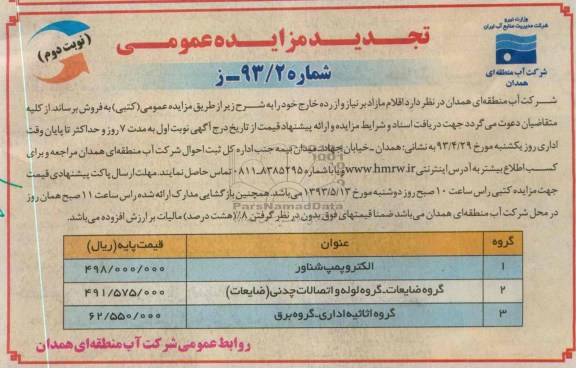 وزارت نیرو
شرکت مدیریت منابع آب ایران
شرکت آب منطقه ای
همدان
تجدید مزایده عمومی
(نوبت دوم)
شماره ۹۳/۲-ز
شرکت آب منطقه ای همدان در نظر دارد اقلام مازاد بر نیاز و از رده خارج خود را به شرح زیر از طریق مزایده عمومی (کتبی) به فروش برساند. از کلیه
متقاضیان دعوت می گردد جهت دریافت اسناد و شرایط مزایده و ارائه پیشنهاد قیمت از تاریخ درج آگهی نوبت اول به مدت ۷ روز و حداکثر تا پایان وقت
اداری روز یکشنبه مورخ ۹۳/۴/۲۹ به نشانی: همدان - خیابان جهاد - میدان بیمه جنب اداره کل ثبت احوال شرکت آب منطقه ای همدان مراجعه و برای
کسب اطلاع بیشتر به آدرس اینترنتی www.hmrw.ir و یا با شماره ۸۳۸۵۲۹۵-۰۸۱۱ تماس حاصل نمایند. مهلت ارسال پاکت پیشنهادی قیمت
جهت مزایده کتبی راس ساعت ۱۰ صبح روز دوشنبه مورخ ۱۳۹۳/۵/۱۳ می باشد. همچنین بازگشایی مدارک ارائه شده راس ساعت ۱۱ صبح همان روز
در محل شرکت آب منطقه ای همدان می باشد ضمنا قیمتهای فوق بدون در نظر گرفتن ۸٪ (هشت درصد) مالیات بر ارزش افزوده می باشد.
گروه عنوان قیمت پایه (ریال)
۱ الکتروپمپ شناور ۴۹۸/۰۰۰/۰۰۰
۲ گروه ضایعات - گروه لوله و اتصالات چدنی (ضایعات) ۴۹۱/۵۷۵/۰۰۰
۳ گروه اثاثیه اداری - گروه برق ۶۲/۵۵۰/۰۰۰
روابط عمومی شرکت آب منطقه ای همدان
ParsNamadData